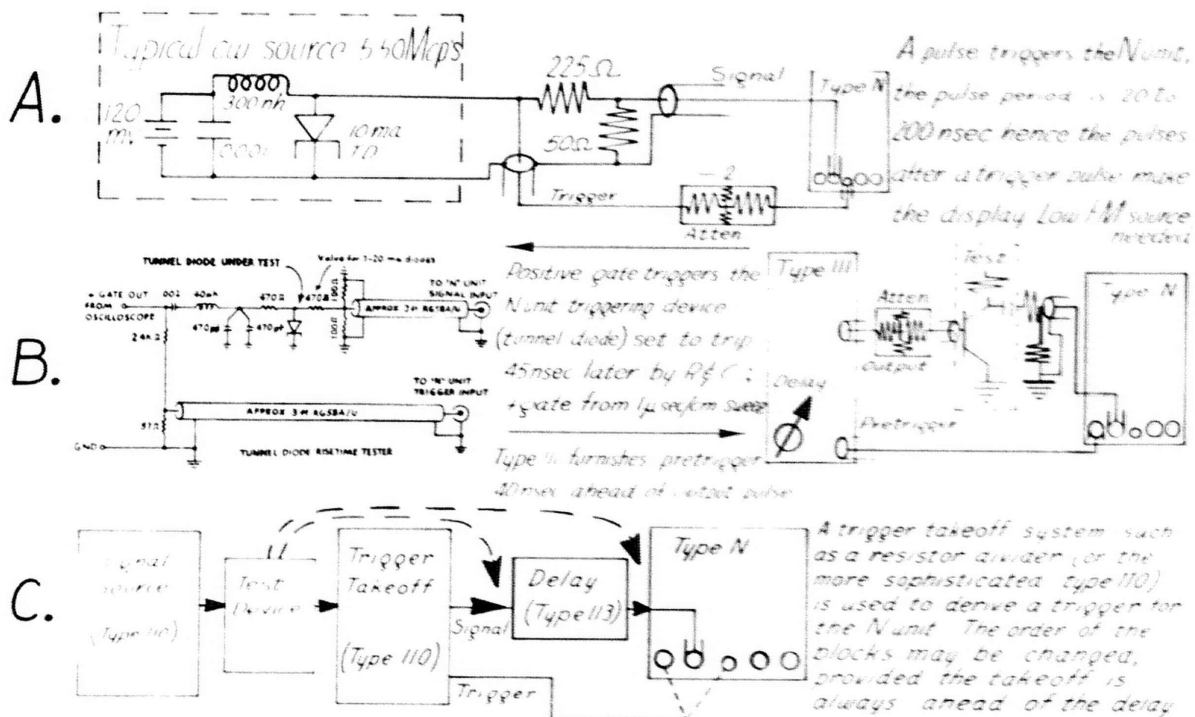 A.
Typical cw source 550Mcps
120
mv
300nh
.0001
10ma
T.D.
225Ω
50Ω
Signal
Type N
Trigger
2
Atten
A pulse triggers the N unit,
the pulse period is 20 to
200 nsec hence the pulses
after a trigger pulse make
the display Low FM source
needed
B.
TUNNEL DIODE UNDER TEST
Value for 1-20 ma diodes
+ GATE OUT
FROM
OSCILLOSCOPE
.001
470Ω
470Ω
470pf
470pf
100Ω
100Ω
APPROX 3 ft RG58A/U
TO 'N' UNIT
SIGNAL INPUT
2.4K Ω
51Ω
GND
APPROX 3 ft RG58A/U
TO 'N' UNIT
TRIGGER INPUT
TUNNEL DIODE RISETIME TESTER
Positive gate triggers the
N unit triggering device
(tunnel diode) set to trip
45nsec later by R & C;
+gate from 1µsec/cm sweep
Type 111 furnishes pretrigger
40nsec ahead of output pulse
Type 111
Atten
Output
Delay
Test
Pretrigger
Type N
C.
Signal
Source
(Type 110)
Test
Device
Trigger
Takeoff
(Type 110)
Signal
Trigger
Delay
(Type 113)
Type N
A trigger takeoff system such
as a resistor divider (or the
more sophisticated type 110)
is used to derive a trigger for
the N unit The order of the
blocks may be changed,
provided the takeoff is
always ahead of the delay